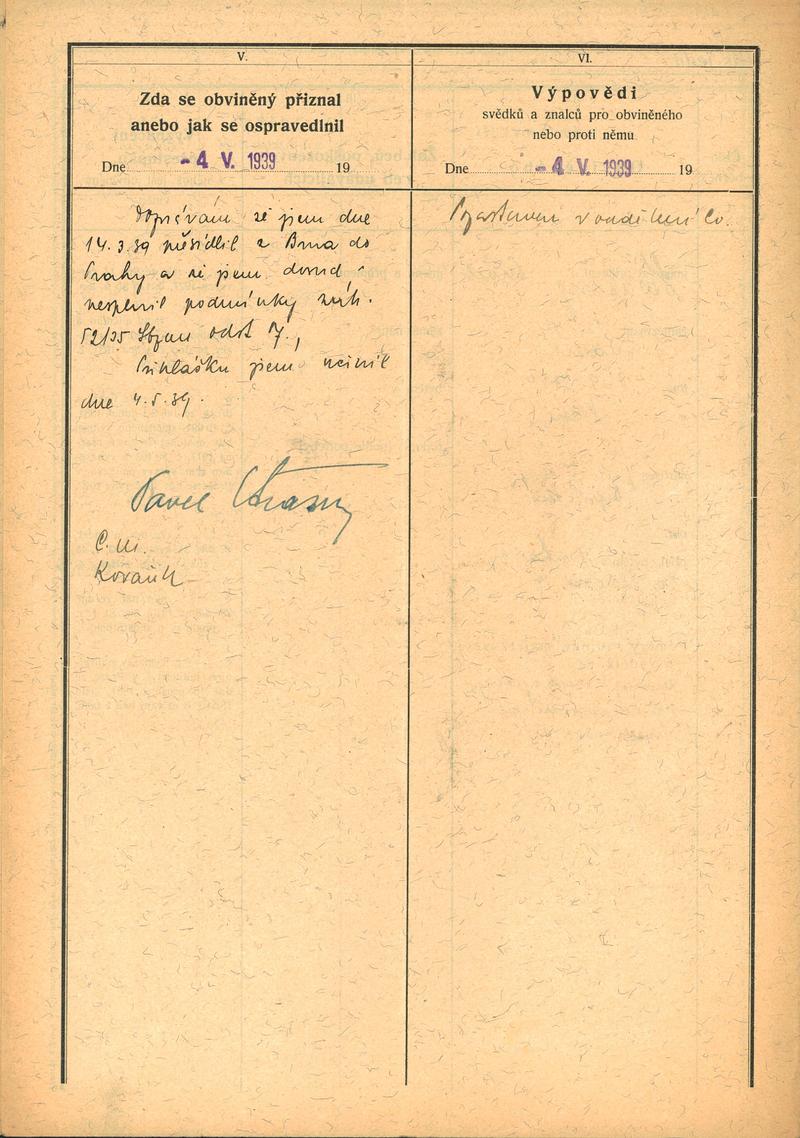 V.
Zda se obviněný přiznal
anebo jak se ospravedlnil
Dne - 4 V. 1939 19
že jsem dne
14.3.39 z Brna do
Prahy a že jsem dosud
nesplnil podmínky
52/35 odst 7.,
Přihlášku jsem učinil
dne 4.5.39.
Pavel
VI.
Výpovědi
svědků a znalců pro obviněného
nebo proti němu
Dne - 4 V. 1939 19